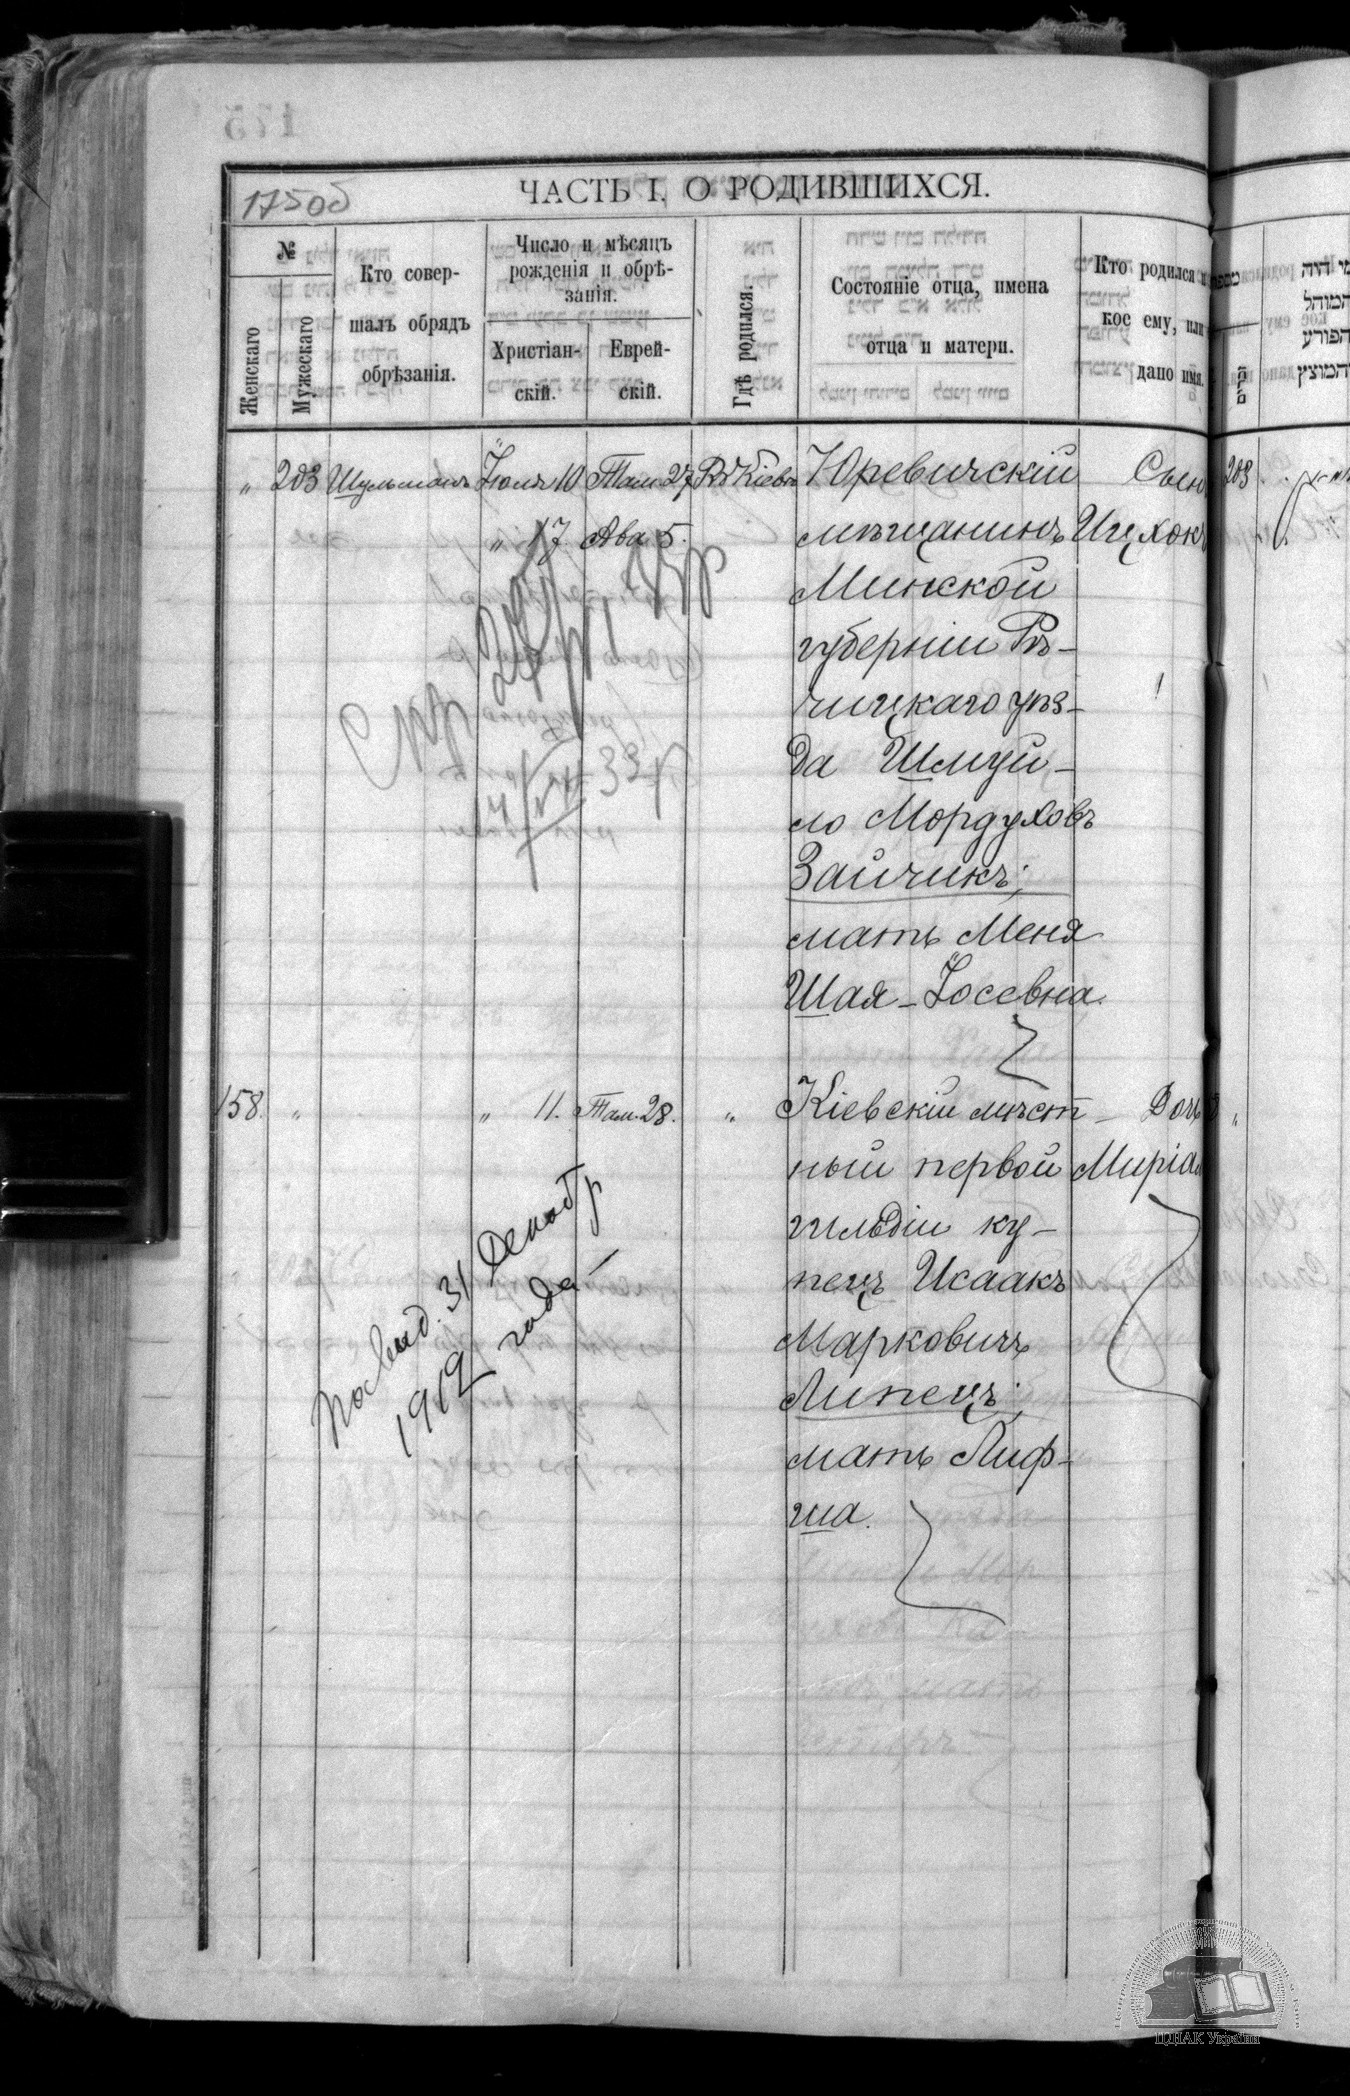 175об
ЧАСТЬ I. О РОДИВШИХСЯ.
№
Женскаго
Мужескаго
Кто совер-
шалъ обрядъ
обрѣзанія.
Число и мѣсяцъ
рожденія и обрѣ-
занія.
Христіан-
скій.
Еврей-
скій.
Гдѣ родился.
Состояніе отца, имена
отца и матери.
Кто родился и
кое ему, или
дано имя.
„ 203 Шульманъ Іюля 10 Там. 27 Въ Кіевѣ Юревичскій Сынъ 203
„ 17 Ава 5. мѣщанинъ Ицхокъ
Минской
губерніи Рѣ-
чицкаго уѣз-
да Шмуй-
ло Мордуховъ
Зайчикъ;
мать Меня
Шая-Іосевна.
14/VII-33 г.
158. „ „ 11. Там. 28. „ Кіевскій мѣст- Дочь „
ный первой Миріам
гильдіи ку-
пецъ Исаакъ
Марковичъ
Липецъ;
мать Лиф-
ша.
31 Декабр
1912 года
המוהל
הפורע
והמוצץ
ЦДІАК України